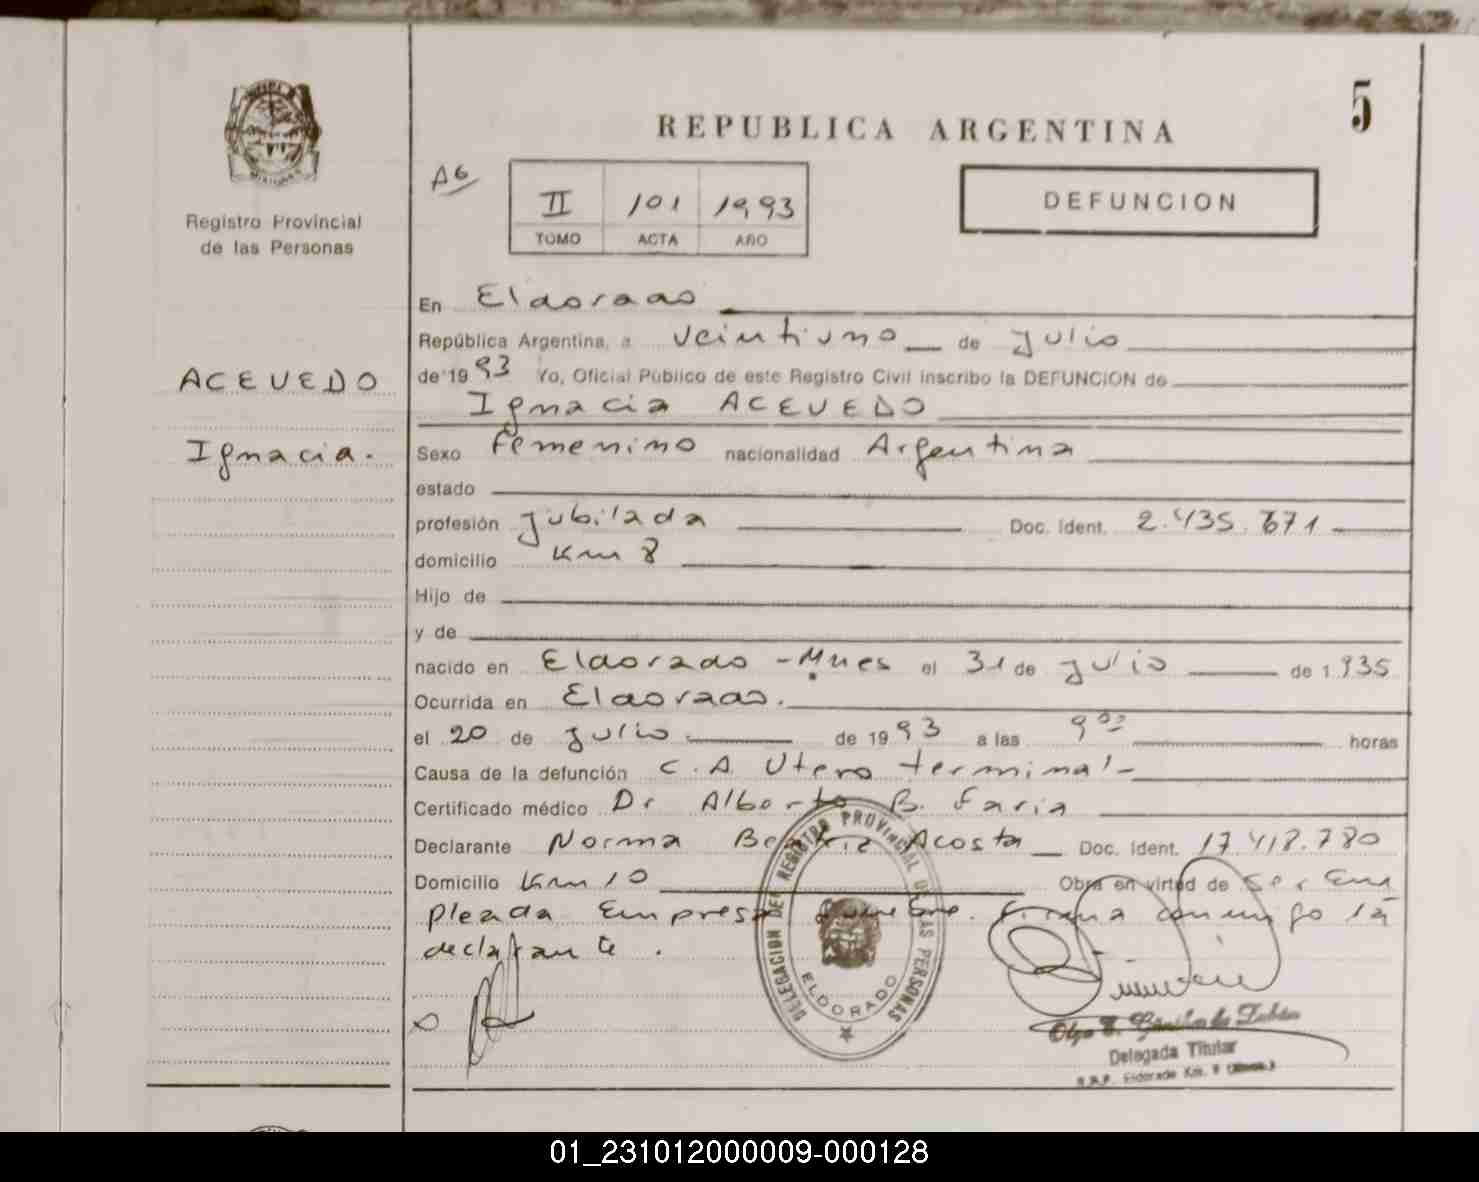 5
REPUBLICA ARGENTINA
A6
II 101 1993
TOMO ACTA AÑO
DEFUNCION
Registro Provincial
de las Personas
ACEVEDO
Ignacia.
En Eldorado
República Argentina, a veintiuno de Julio
de 1993 Yo, Oficial Público de este Registro Civil inscribo la DEFUNCION de
Ignacia ACEVEDO
Sexo femenino nacionalidad Argentina
estado
profesión Jubilada Doc. Ident. 2.435.671
domicilio Km 8
Hijo de
y de
nacido en Eldorado - Mnes el 31 de Julio de 1935
Ocurrida en Eldorado.
el 20 de Julio de 1993 a las 9°° horas
Causa de la defunción C.A. Utero terminal
Certificado médico Dr Alberto B. Faria
Declarante Norma Beatriz Acosta Doc. Ident. 17.418.780
Domicilio Km 10 Obra en virtud de ser Em
pleada Empresa Funebre. Firma conmigo la
declarante.
DELEGACION DEL REGISTRO PROVINCIAL DE LAS PERSONAS
ELDORADO
Delegada Titular
R.P.P. Eldorado Km. 9
01_231012000009-000128